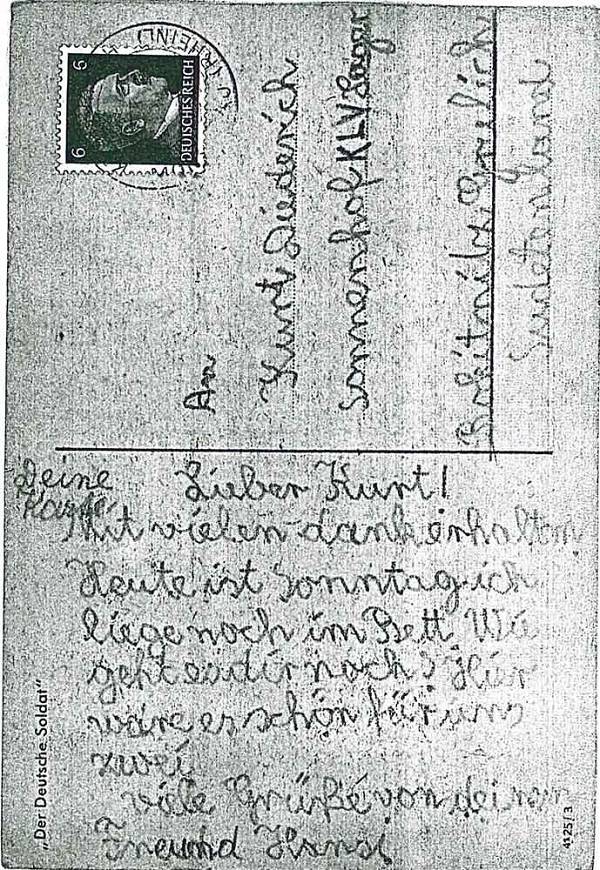 6 6
DEUTSCHES REICH
(RHEINL)
An
Kurt Diederich
Sonnenhof KLV Lager
Rokitnitz Grulich
Sudetenland
Deine
Karte
Lieber Kurt!
Mit vielen dank erhalten
Heute ist Sonntag ich
liege noch im Bett Wie
geht es dir noch? Hier
wäre es schön für uns
zwei
viele Grüße von deinem
Freund Hans!
„Der Deutsche Soldat“
4125/3